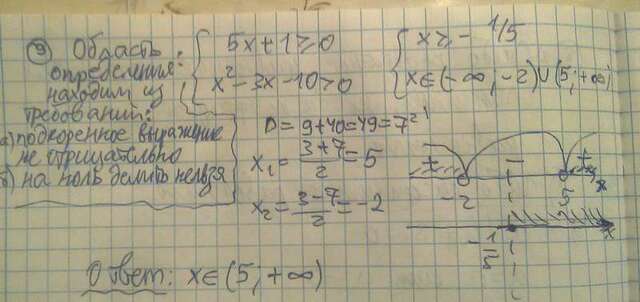 ⑨ Область определения находим из требований:
а) подкоренное выражение не отрицательно
б) на ноль делить нельзя
{ 5x+1≥0
x²-3x-10>0
{ x≥-1/5
x∈(-∞;-2)∪(5;+∞)
D=9+40=49=7²
x₁=(3+7)/2=5
x₂=(3-7)/2=-2
+ - +
-2 5 x
-1/5 x
Ответ: x∈(5;+∞)